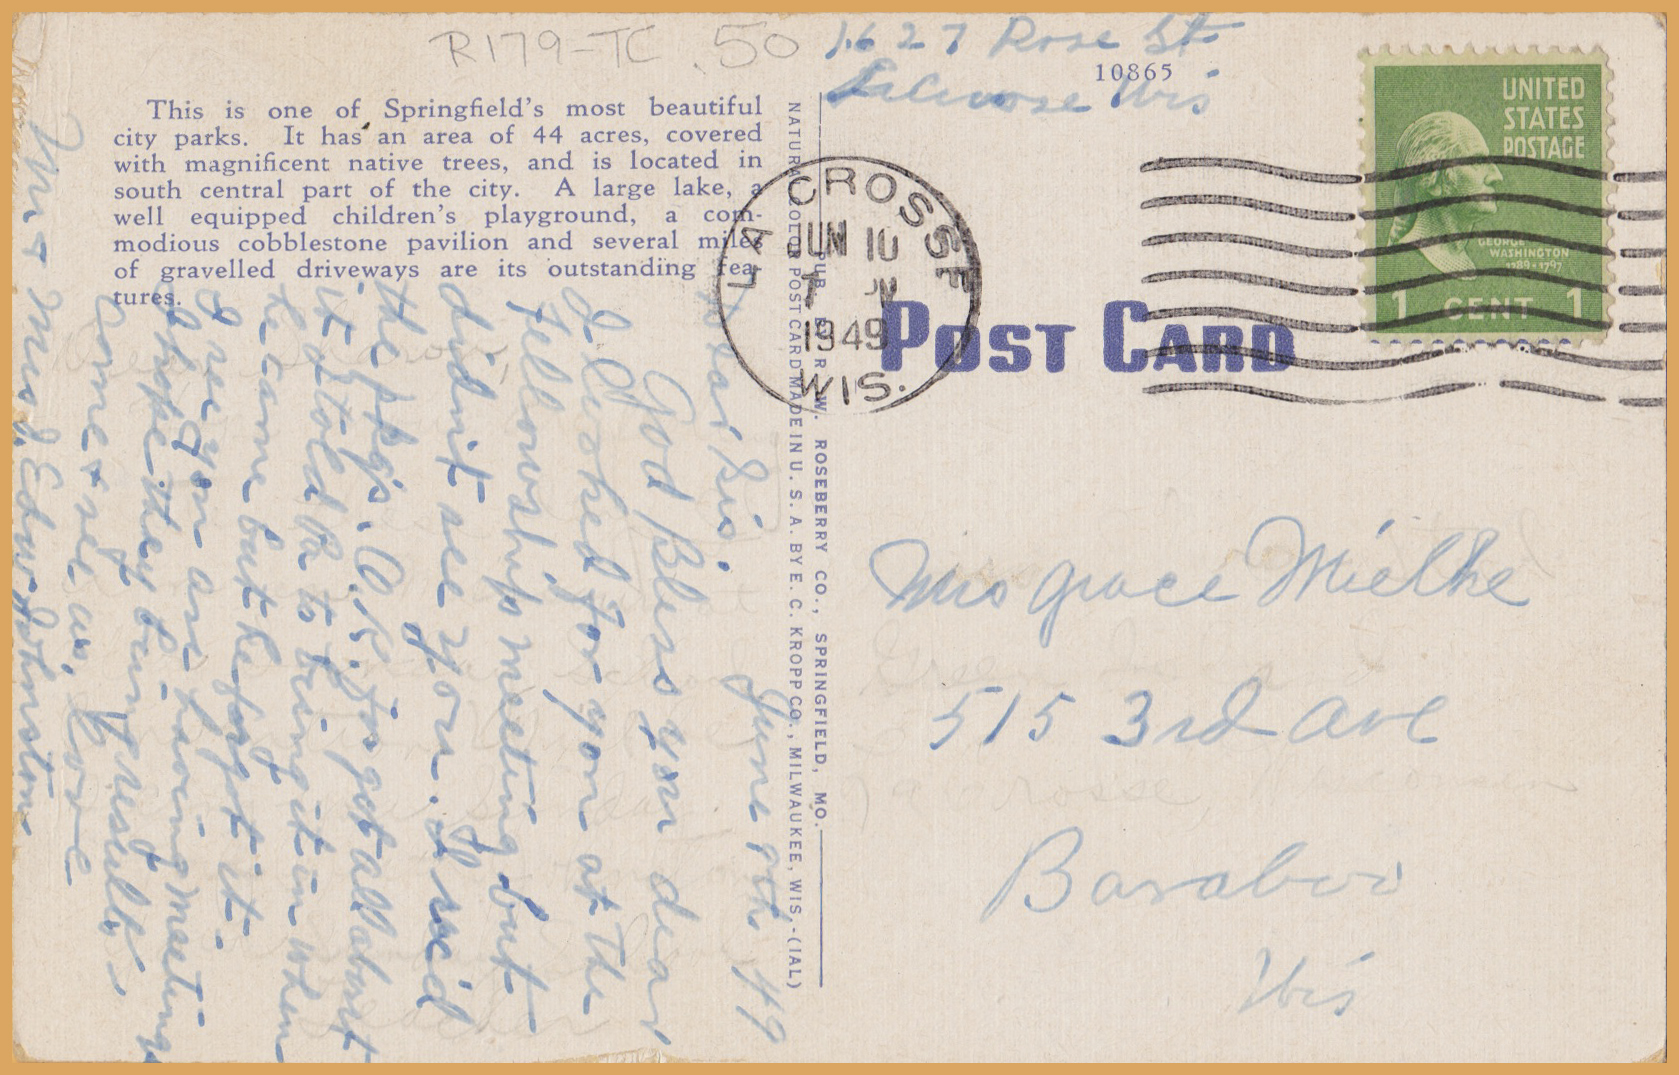 R179-TC .50
1627 Rose St
LaCrosse Wis
10865
This is one of Springfield's most beautiful
city parks. It has an area of 44 acres, covered
with magnificent native trees, and is located in
south central part of the city. A large lake, a
well equipped children's playground, a com-
modious cobblestone pavilion and several miles
of gravelled driveways are its outstanding fea-
tures.
NATURAL COLOR POST CARD MADE IN U. S. A. BY E. C. KROPP CO., MILWAUKEE, WIS.-(IAL)
PUB. BY R. W. ROSEBERRY CO., SPRINGFIELD, MO.
LA CROSSE
JUN 10
1949
WIS.
UNITED
STATES
POSTAGE
GEORGE
WASHINGTON
1789-1797
1 CENT 1
POST CARD
Mrs Grace Mielke
515 3rd Ave
Baraboo
Wis
June 9th 49
Dear Sis.
God Bless you dear
I looked for you at the
Fellowship meeting but
didnt see you. I recd
the pkg. O.K. forgot all about
it I told to bring it in when
he came but he forgot it.
I see you are having meetings
I hope they bring results.
Come & see us, Love
Mr & Mrs Edw Johnston